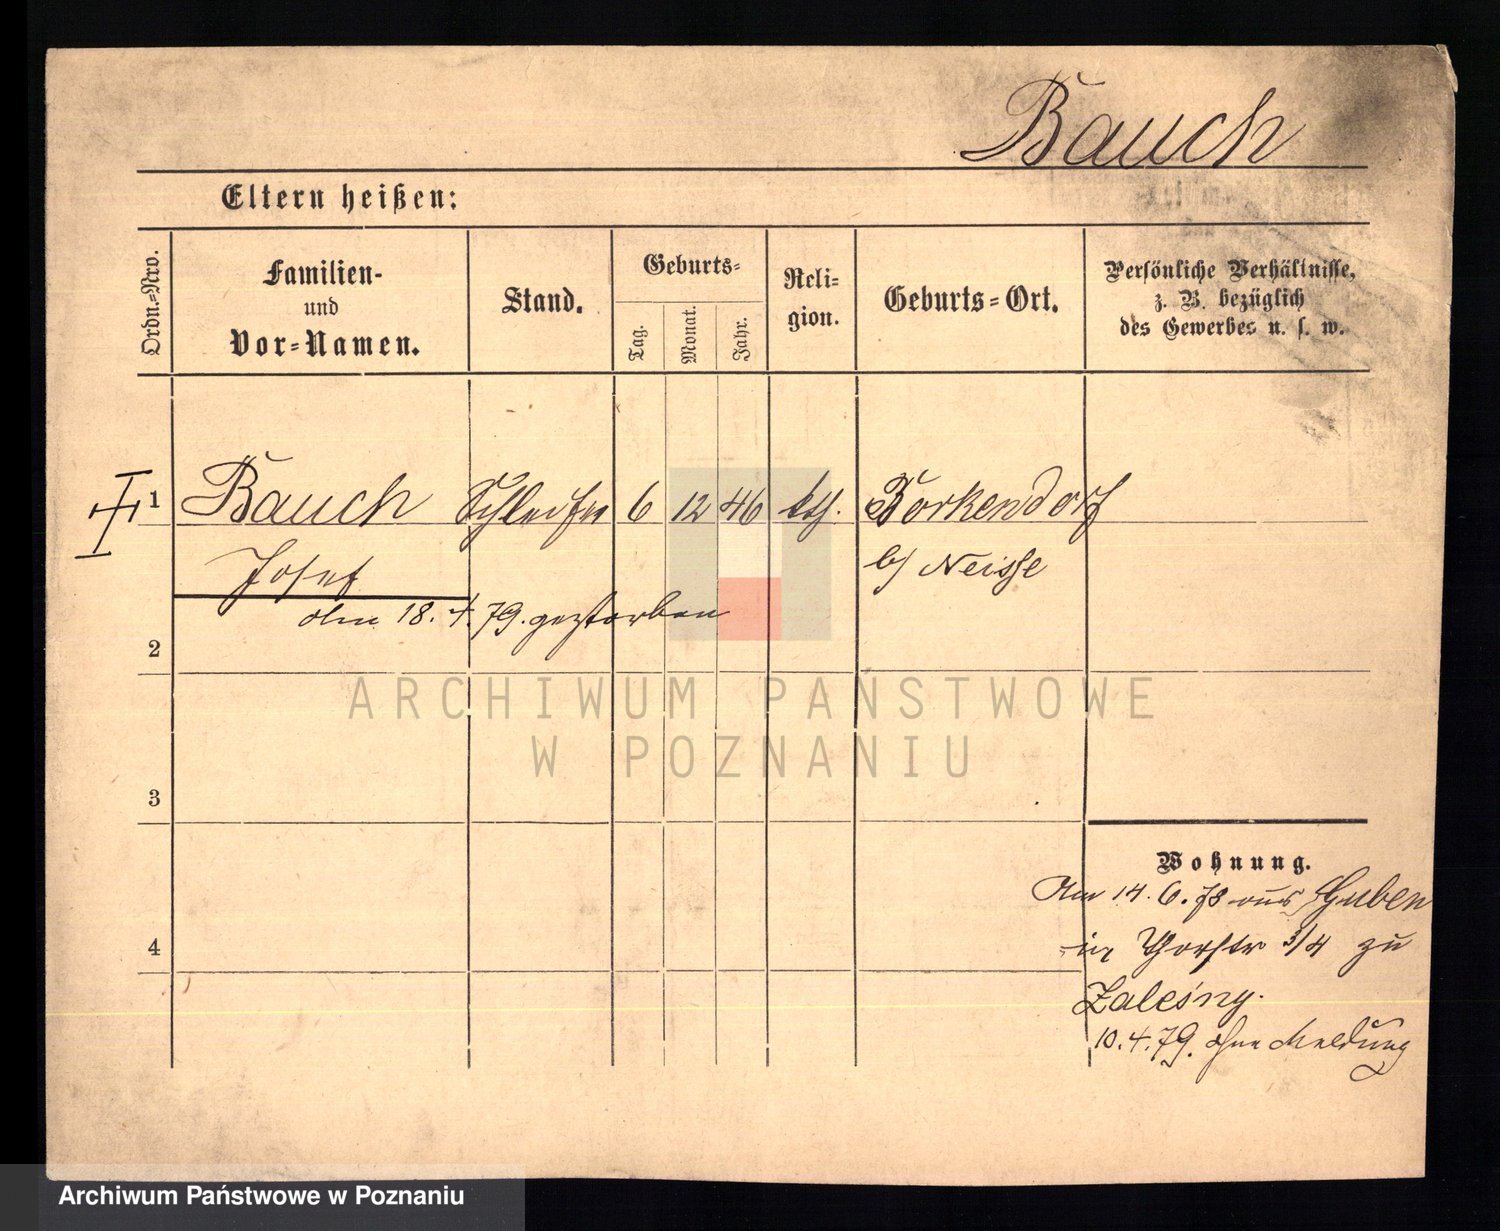 Bauch
Eltern heißen:
Ordn.=Nro.
Familien-
und
Vor=Namen.
Stand.
Geburts=
Tag.
Monat.
Jahr.
Reli=
gion.
Geburts=Ort.
Persönliche Verhältnisse,
z. B. bezüglich
des Gewerbes u. s. w.
1 Bauch Schleifer 6 12 46 kth. Borkendorf
Josef b/ Neisse
den 18. 4. 79. gestorben
2
ARCHIWUM PAŃSTWOWE
W POZNANIU
3
Wohnung.
Am 14. 6. 78 aus Guben
in Thorstr 3/4 zu
4
Zaleśny.
10. 4. 79. ohne Meldung
Archiwum Państwowe w Poznaniu